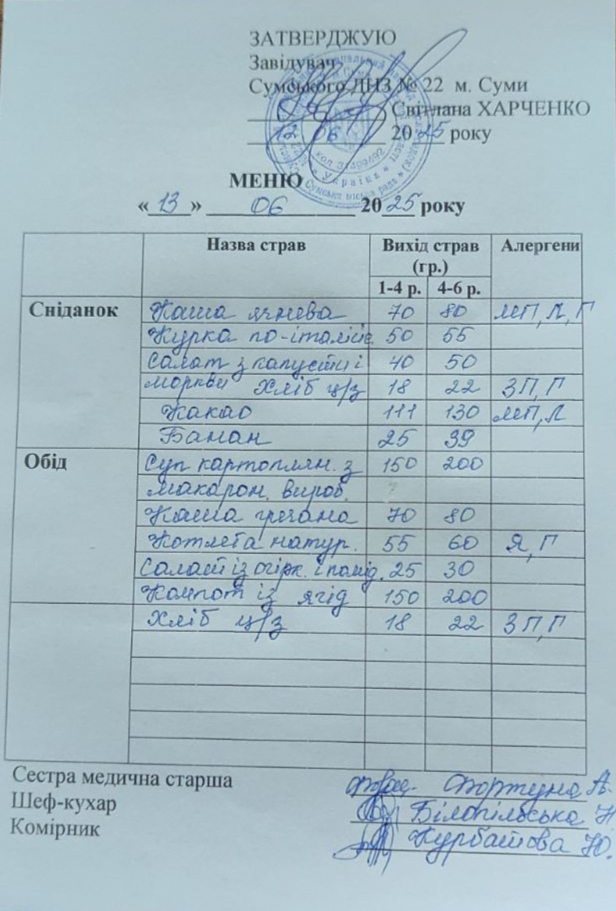 ЗАТВЕРДЖУЮ
Завідувач
Сумського ДНЗ № 22 м. Суми
Світлана ХАРЧЕНКО
12 06 2025 року
МЕНЮ
«13» 06 2025 року
Назва страв Вихід страв (гр.) Алергени
1-4 р. 4-6 р.
Сніданок Каша ячнева 70 80 МП, Л, Г
Курка по-італійс. 50 55
Салат з капусти і 40 50
моркви Хліб ц/з 18 22 ЗП, Г
Какао 111 130 МП, Л
Банан 25 39
Обід Суп картоплян. з 150 200
макарон. вироб.
Каша гречана 70 80
Котлета натур. 55 60 Я, Г
Салат із огірк. і помід. 25 30
Компот із ягід 150 200
Хліб ц/з 18 22 ЗП, Г
Сестра медична старша
Шеф-кухар Білопільська Н
Комірник Курбатова Ю.